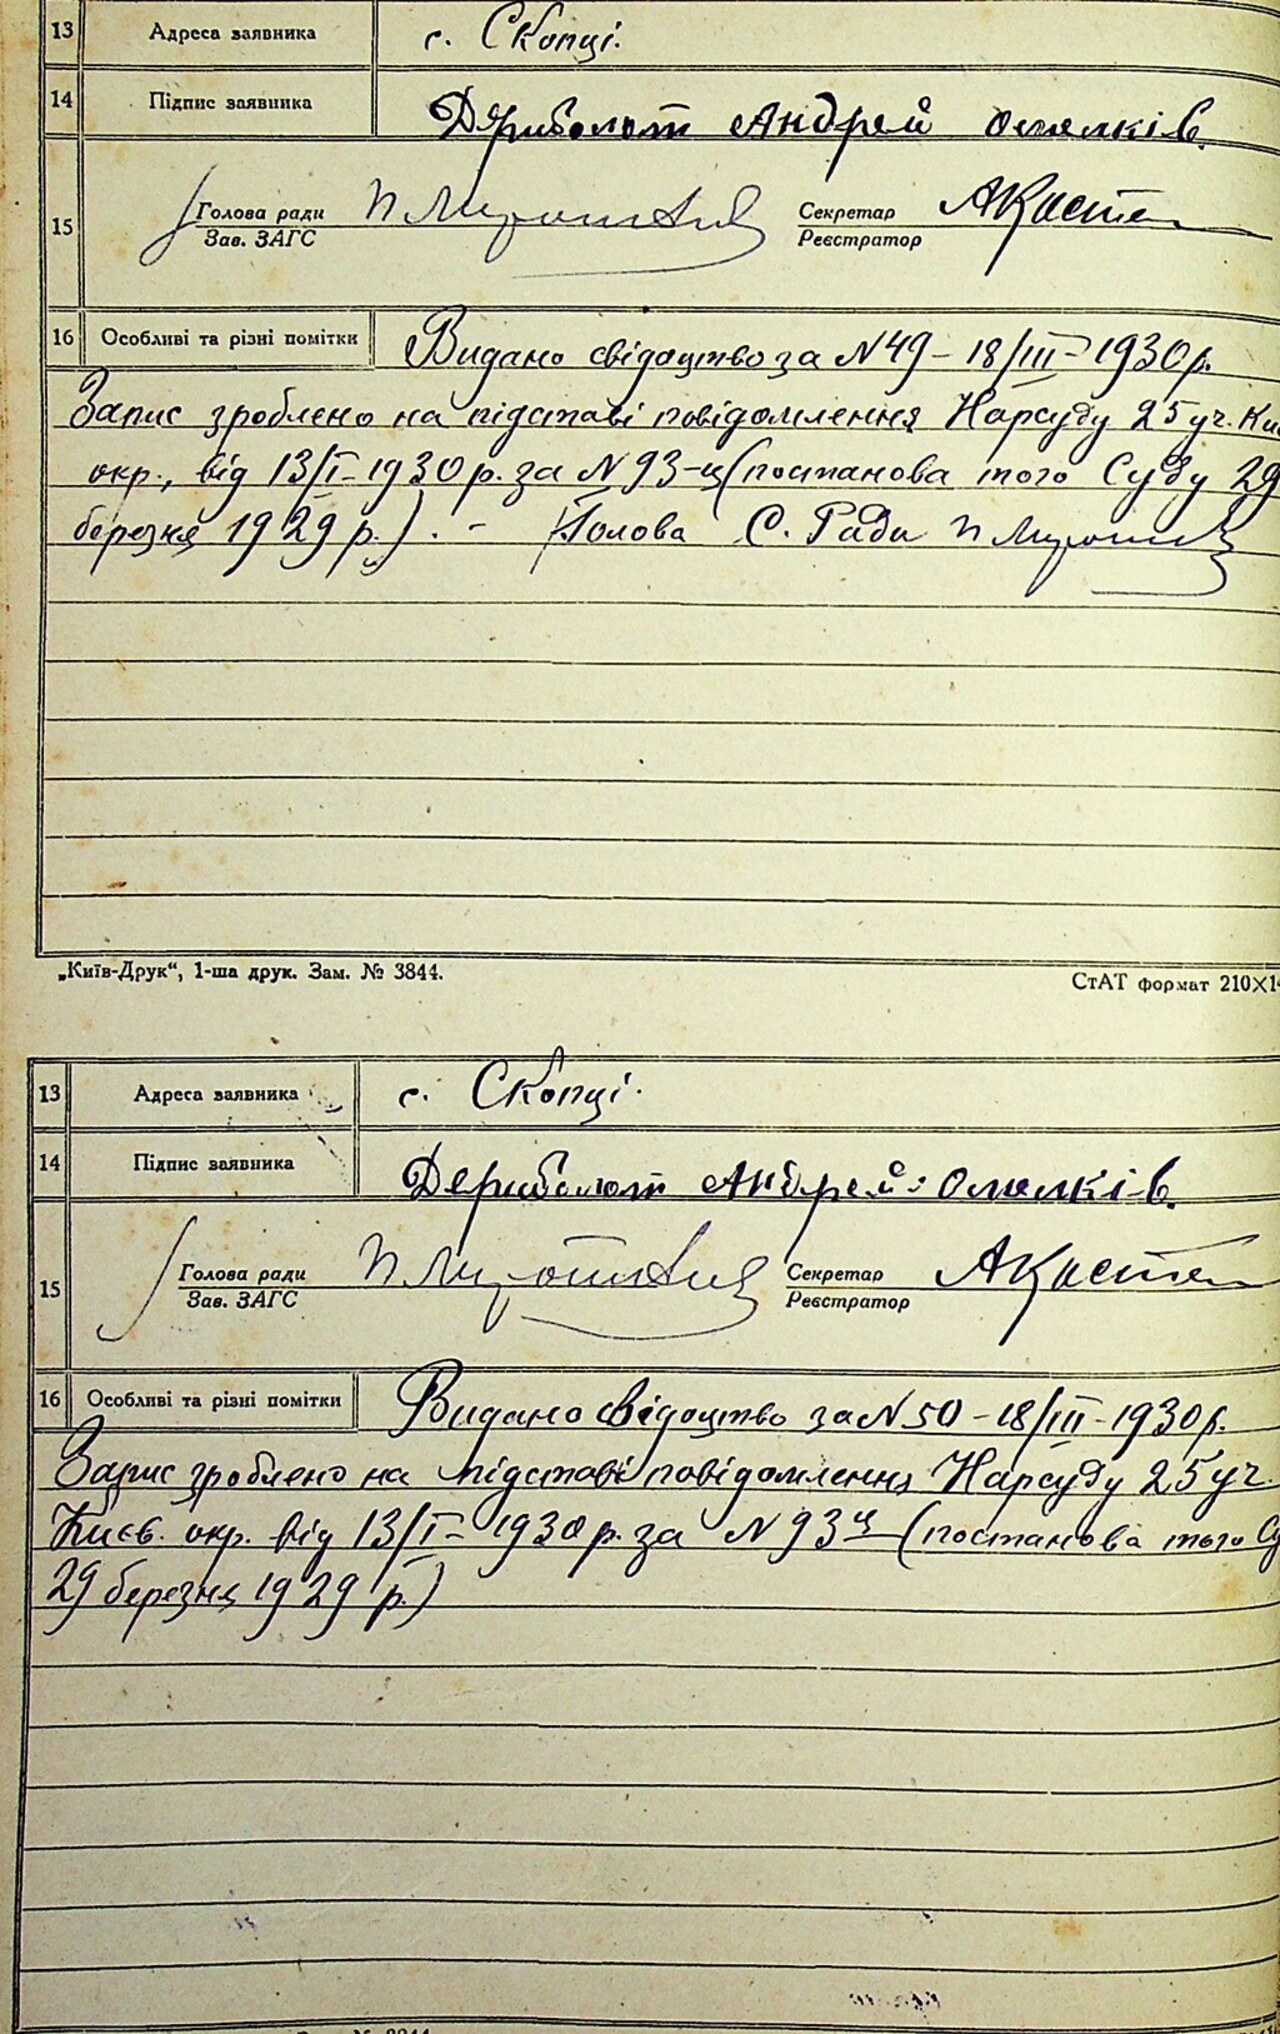 13 Адреса заявника с. Скопці.
14 Підпис заявника Дериболот Андрей Омелків.
15 Голова ради Секретар
Зав. ЗАГС Реєстратор
16 Особливі та різні помітки Видано свідоцтво за N49 – 18/III – 1930 р.
Запис зроблено на підставі повідомлення Нарсуду 25 уч. Ки
окр., від 13/I – 1930 р. за N 93-ц (постанова того Суду 29
березня 1929 р.). – Голова С. Ради
„Київ-Друк“, 1-ша друк. Зам. № 3844.
СтАТ формат 210×14
13 Адреса заявника с. Скопці.
14 Підпис заявника Дериболот Андрей Омелків.
15 Голова ради Секретар
Зав. ЗАГС Реєстратор
16 Особливі та різні помітки Видано свідоцтво за N 50 – 18/III – 1930 р.
Запис зроблено на підставі повідомлення Нарсуду 25 уч.
Києв. окр. від 13/I – 1930 р. за N 93ц (постанова того Су
29 березня 1929 р.)